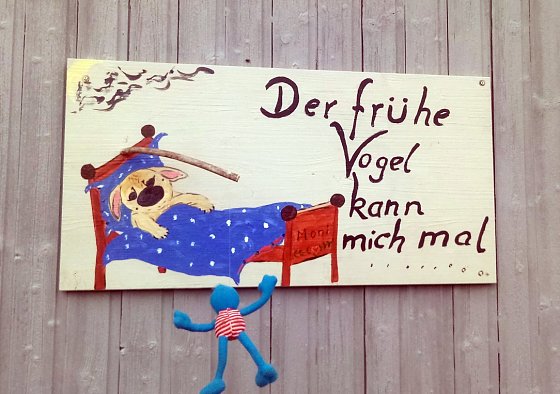 Der frühe
Vogel
kann
mich mal
..........